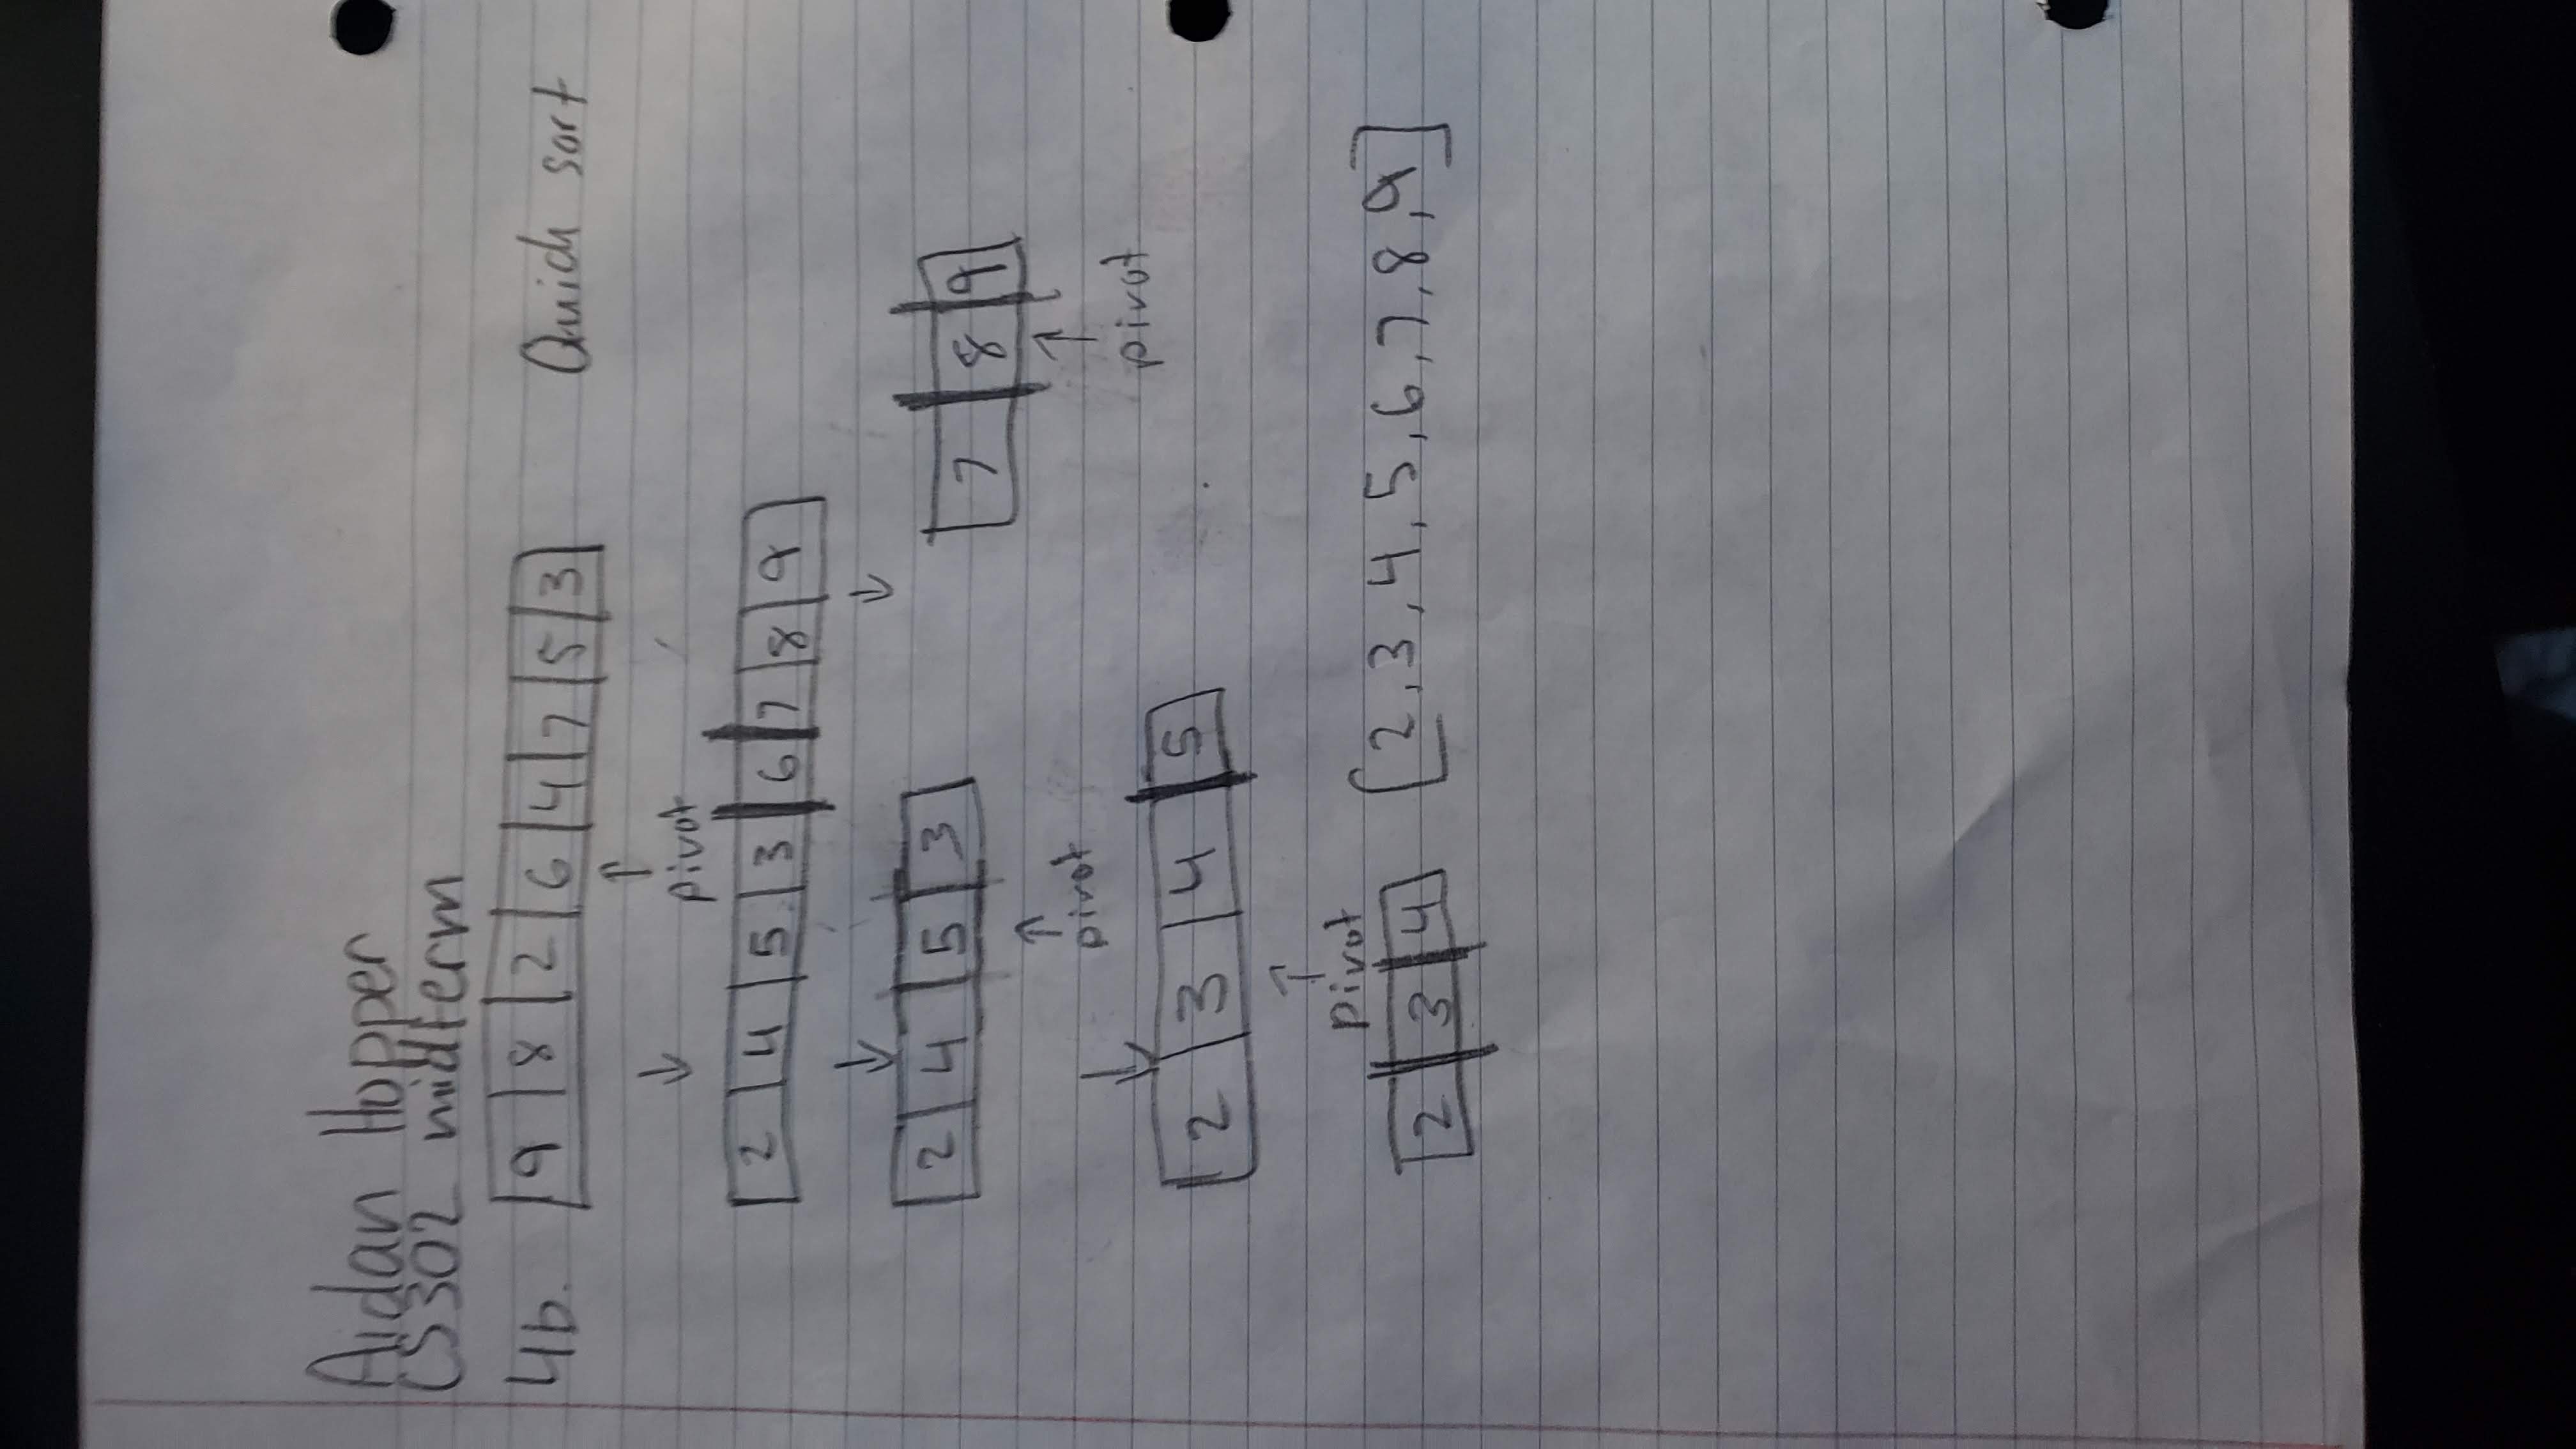 Aidan Hopper
CS302 midterm
4b. 9 8 2 6 4 7 5 3 Quick sort
↑
↓ pivot
2 4 5 3 6 7 8 9
↓ ↓
2 4 5 3 7 8 9
↑ ↑
pivot pivot
↓
2 3 4 5
↑
pivot
2 3 4 [2, 3, 4, 5, 6, 7, 8, 9]